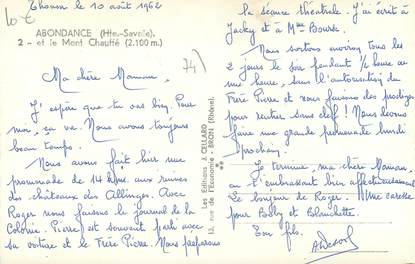 Thonon le 10 août 1962
10€
ABONDANCE (Hte.-Savoie).
2 - et le Mont Chauffé (2.100 m.)
74
Ma chère Maman,
J'espère que tu vas bien. Pour
moi, ça va. Nous avons toujours
beau temps.
Nous avons fait hier une
promenade de 14 kms aux ruines
des châteaux des Allinges. Avec
Roger nous faisons le journal de la
Colonie. Pierre est souvent parti avec
sa voiture et le Frère Pierre. Nous préparons
Les Editions J. CELLARD
13, rue de l'Economie - BRON (Rhône)
la séance théâtrale. J'ai écrit à
Jacky et à Mme
Nous sortons environ tous les
2 jours le soir pendant 1/2 heure ou
une heure, sans l'autorisation du
Frère Pierre et nous faisons des prodiges
pour rentrer sans clef ! Nous devons
faire une grande permanente lundi
prochain.
Je termine, ma chère Maman,
en t'embrassant bien affectueusement
Le bonjour de Roger. Une caresse
pour et Blanchette.
Ton fils.